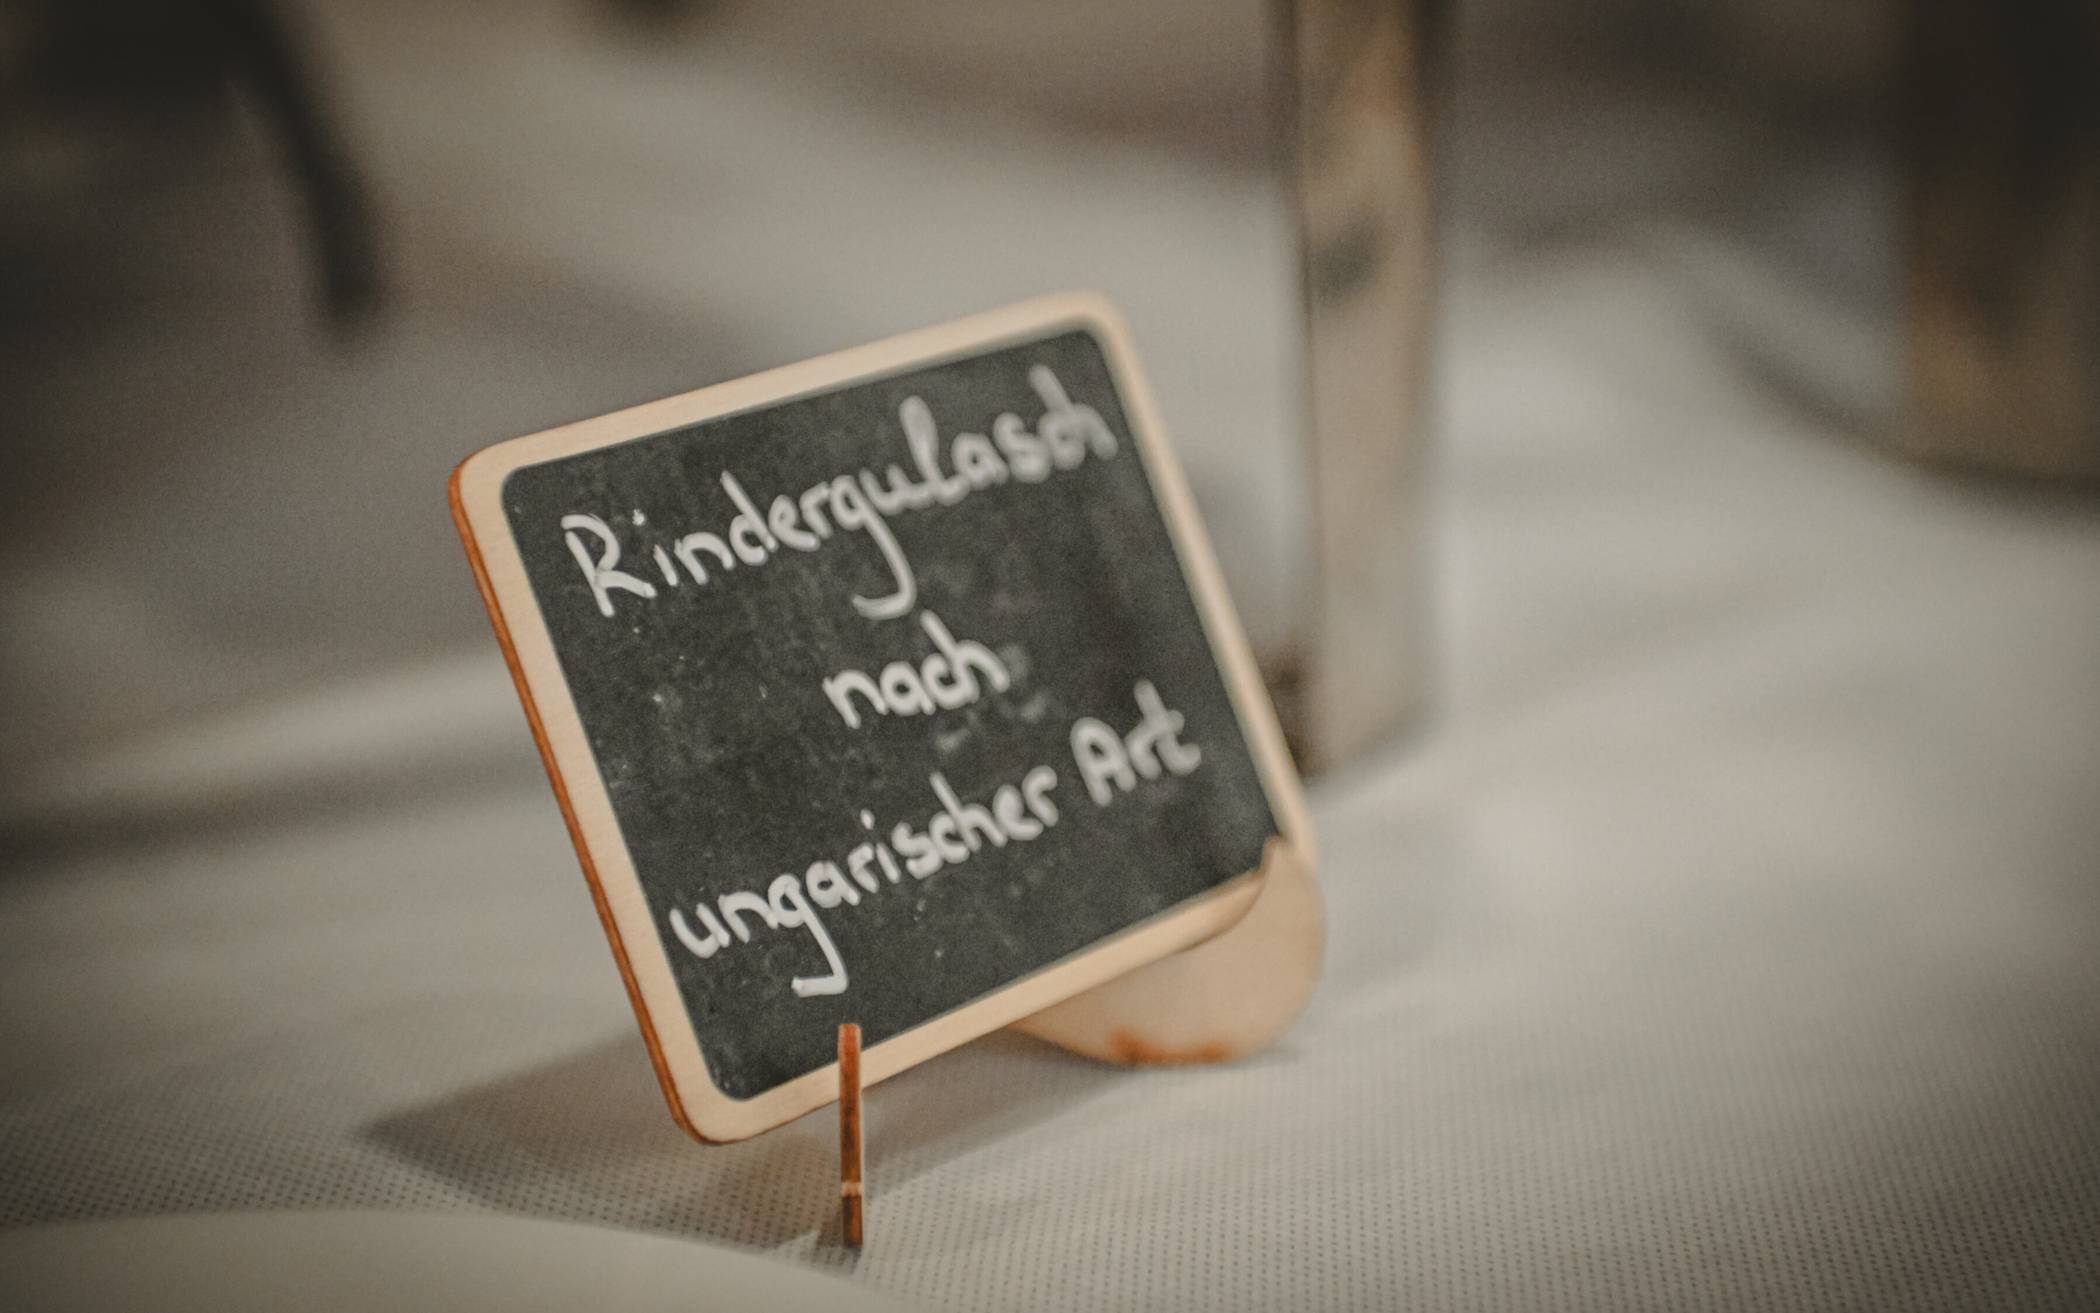 Rindergulasch
nach
ungarischer Art